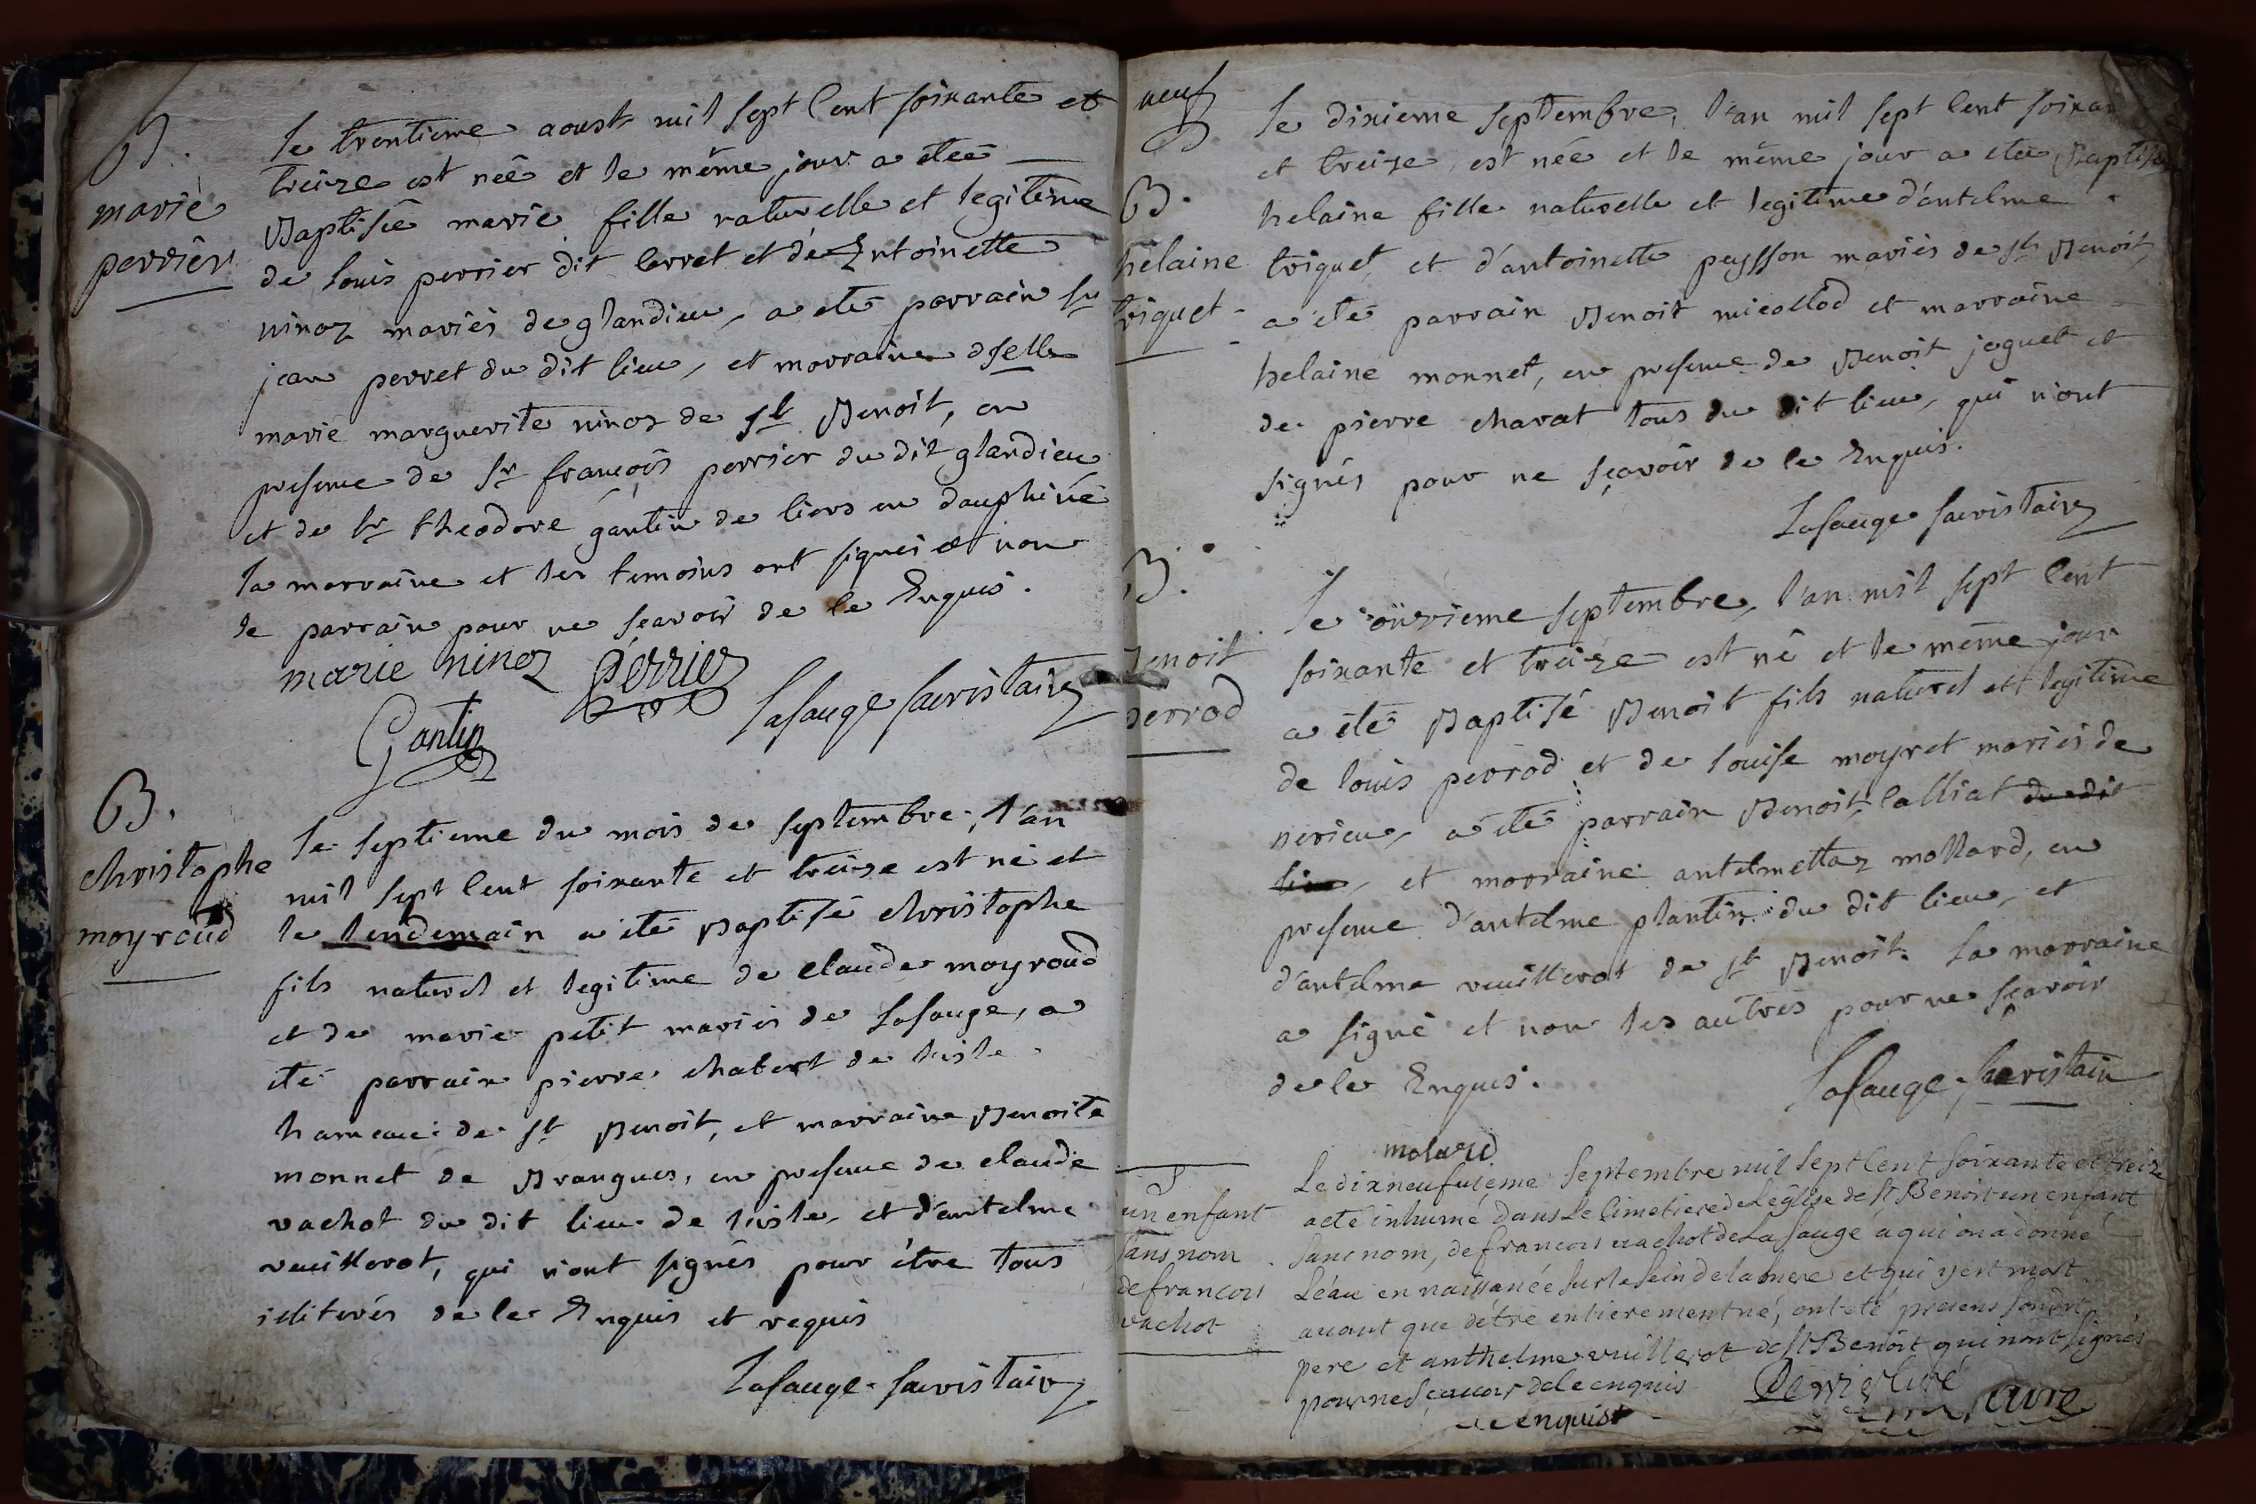 B.
marie
perrier
Le trentieme aoust mil sept Cent soixante et
treize est née et le même jour a éteé
Baptisée marie fille naturelle et legitime
de louis perrier dit lerret et de Entoinette
ninoz mariés de glandieu, a eté parrain sr
jean perret du dit lieu, et marraine dselle
marie marguerite ninoz de st Benoit, en
presence de sr françois perrier du dit glandieu
et de sr theodore gantin de liers en dauphiné
la marraine et les temoins ont signés et non
le parrain pour ne sçavoir de ce Enquis.
marie ninoz perrier
Lasauge sacristain
Gantin
B.
christophe
moyroud
Le septieme du mois de septembre, l'an
mil sept Cent soixante et treize est né et
le lendemain a été Baptisé christophe
fils naturel et legitime de claude moyroud
et de marie petit mariés de Lasauge, a
eté parrain pierre chabert de lisle
hameau de st Benoit, et marraine Benoite
monnet de Brangues, en presence de claude
vachot du dit lieu de lisle, et d'antelme
veuillerot, qui n'ont signés pour être tous
illiterés de ce Enquis et requis
Lasauge sacristain
neuf
B.
hélaine
triquet
Le dixieme septembre, l'an mil sept Cent
et treize, est née et le même jour a eteé
helaine fille naturelle et legitime d'antelme
triquet et d'antoinette peysson mariés de st Benoit,
a été parrain Benoit micollod et marraine
helaine monnet, en presence de Benoit joguet et
de pierre charat tous du dit lieu, qui n'ont
signés pour ne sçavoir de ce Enquis.
Lasauge sacristain
B.
Benoit
perrod
Le onzieme septembre, l'an mil sept Cent
soixante et treize est né et le même jour
a été Baptisé Benoit fils naturel et legitime
de louis perrod et de louise moyret mariés de
nerieu, a été parrain Benoit Calliat du dit
lieu, et marraine antelmettaz mollard, en
presence d'antelme plantin du dit lieu, et
d'antelme veuillerot de st Benoit. La marraine
a signé et non les autres pour ne sçavoir
de ce Enquis.
Lasauge sacristain
molard
un enfant
sans nom
de francois
vachot
Le dixneufvieme septembre mil sept Cent soixante et treize
a eté inhumé dans le Cimetiere de Leglise de st Benoit un enfant
sans nom, de francois vachot de La sauge a qui on a donné
Léau en naissanée sur le sein de la mere et qui y est mort
avant que d'être entierement né, ont eté presens
pere et anthelme vuillerot de st Benoit qui n'ont signés
pour ne sçavoir de ce enquis
de ce enquis
Curé